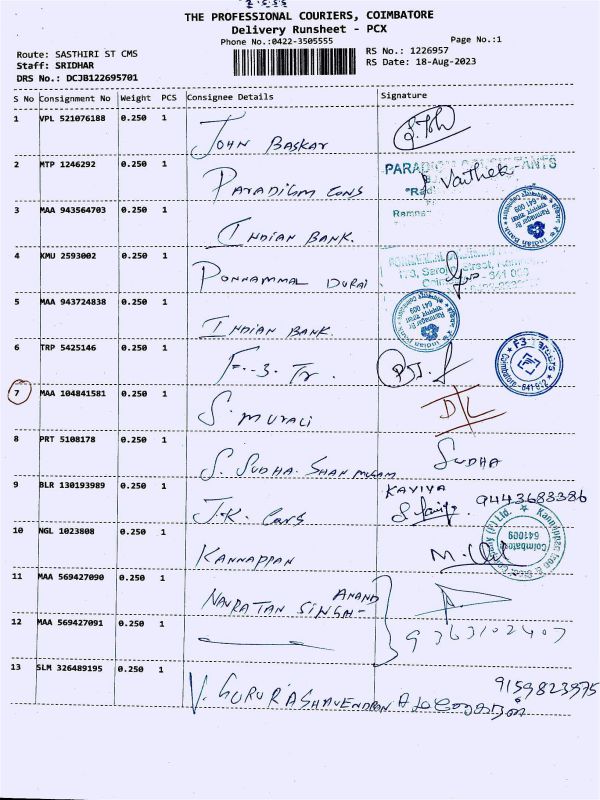 THE PROFESSIONAL COURIERS, COIMBATORE
Delivery Runsheet - PCX
Phone No.:0422-3505555
Page No.:1
Route: SASTHIRI ST CMS
RS No.: 1226957
Staff: SRIDHAR
RS Date: 18-Aug-2023
DRS No.: DCJB122695701
S No Consignment No Weight PCS Consignee Details Signature
1 VPL 521076188 0.250 1
JOHN BASKAR
2 MTP 1246292 0.250 1
PARADIGM CONS
Vaithek
3 MAA 943564703 0.250 1
INDIAN BANK.
4 KMU 2593002 0.250 1
PONNAMMAL DURAI
5 MAA 943724838 0.250 1
INDIAN BANK.
6 TRP 5425146 0.250 1
F.-3. Tr.
7 MAA 104841581 0.250 1
S. MURALI
D/L
8 PRT 5108178 0.250 1
S. SUDHA. SHANMUGAM
SUDHA
9 BLR 130193989 0.250 1
J.K. Cars
KAVIYA
9443683386
10 NGL 1023808 0.250 1
KANNAPPAN
11 MAA 569427090 0.250 1
NAVRATAN SINGH- ANAND
12 MAA 569427091 0.250 1
9363102407
13 SLM 326489195 0.250 1
V. GURURASHAVENDRAN
9159823975